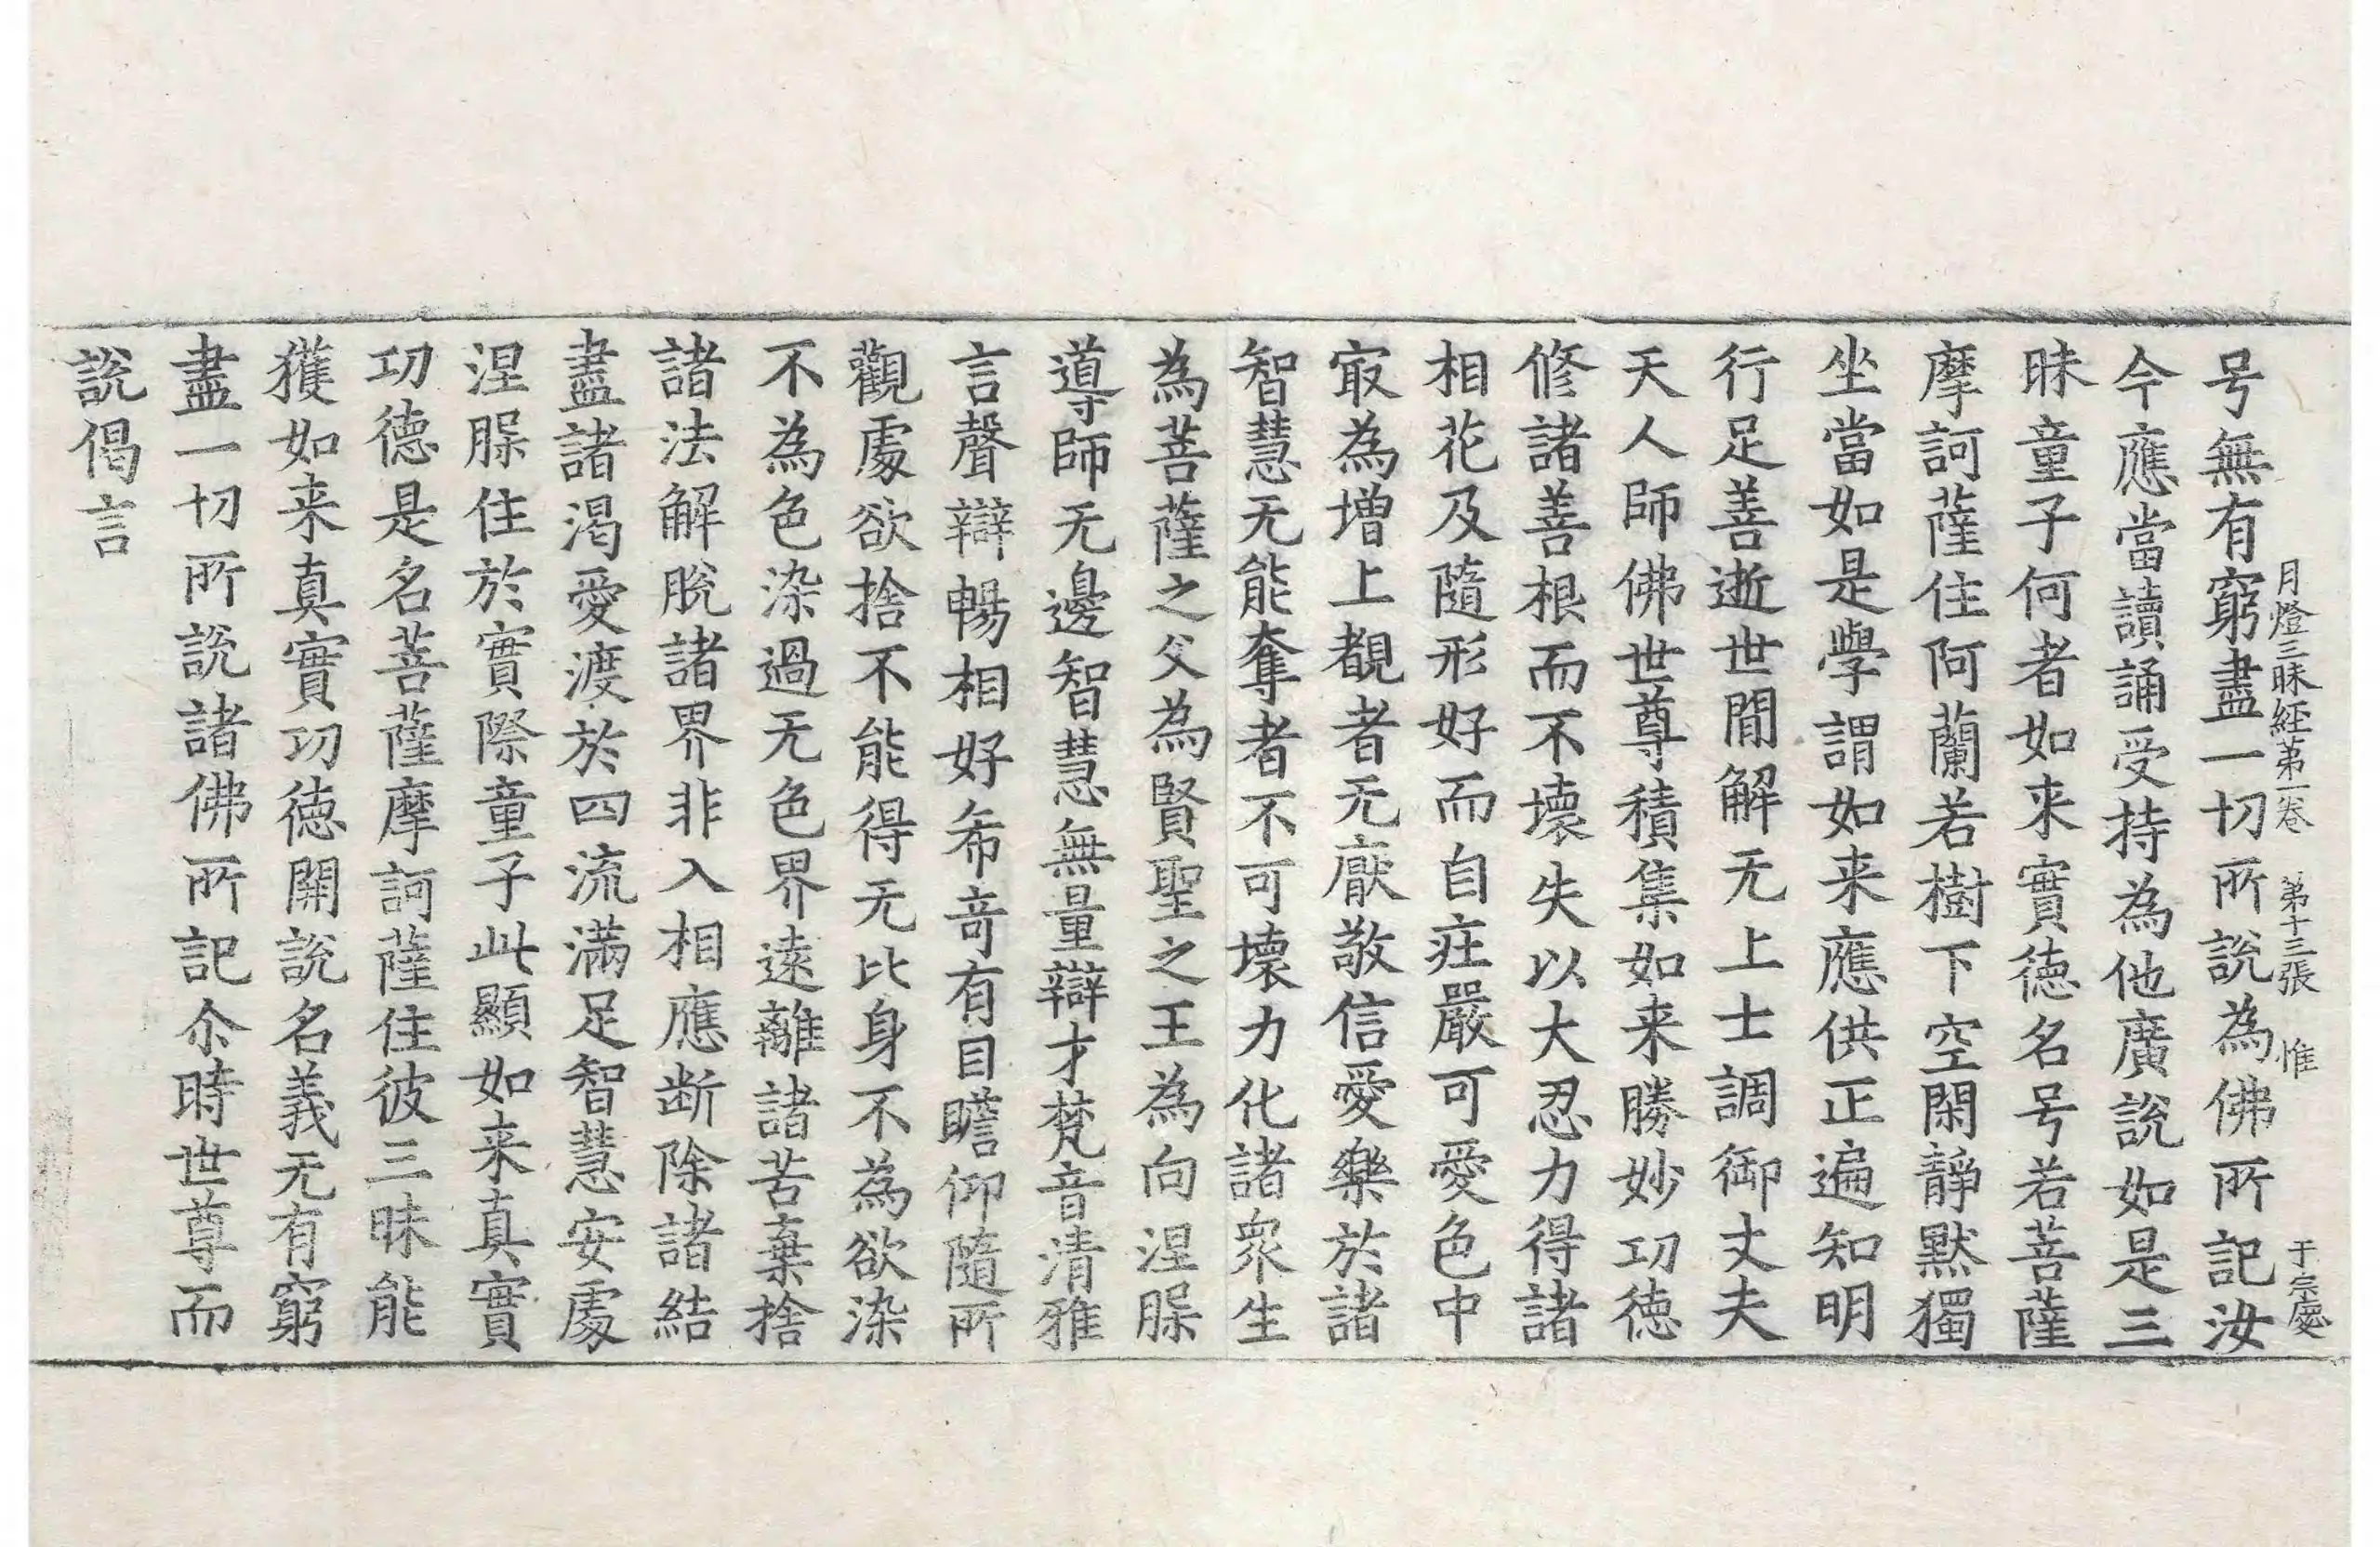 月燈三昧経第一卷　第十三張　惟　于宗慶
号無有窮盡一切所說為佛所記汝
今應當讀誦受持為他廣說如是三
昧童子何者如来實徳名号若菩薩
摩訶薩住阿蘭若樹下空閑靜黙獨
坐當如是學謂如来應供正遍知明
行足善逝世間解无上士調御丈夫
天人師佛世尊積集如来勝妙功徳
修諸善根而不壞失以大忍力得諸
相花及隨形好而自莊嚴可愛色中
㝡為增上覩者无猒敬信愛樂於諸
智慧无能奪者不可壞力化諸眾生
為菩薩之父為賢聖之王為向涅䏶
導師无邊智慧無量辯才梵音清雅
言聲辯暢相好希竒有目瞻仰隨所
觀處欲捨不能得无比身不為欲染
不為色染過无色界遠離諸苦棄捨
諸法解脫諸界非入相應断除諸結
盡諸渴愛渡於四流滿足智慧安處
涅䏶住於實際童子此顯如来真實
功德是名菩薩摩訶薩住彼三昧能
獲如来真實功徳開說名義无有窮
盡一切所說諸佛所記尒時世尊而
說偈言